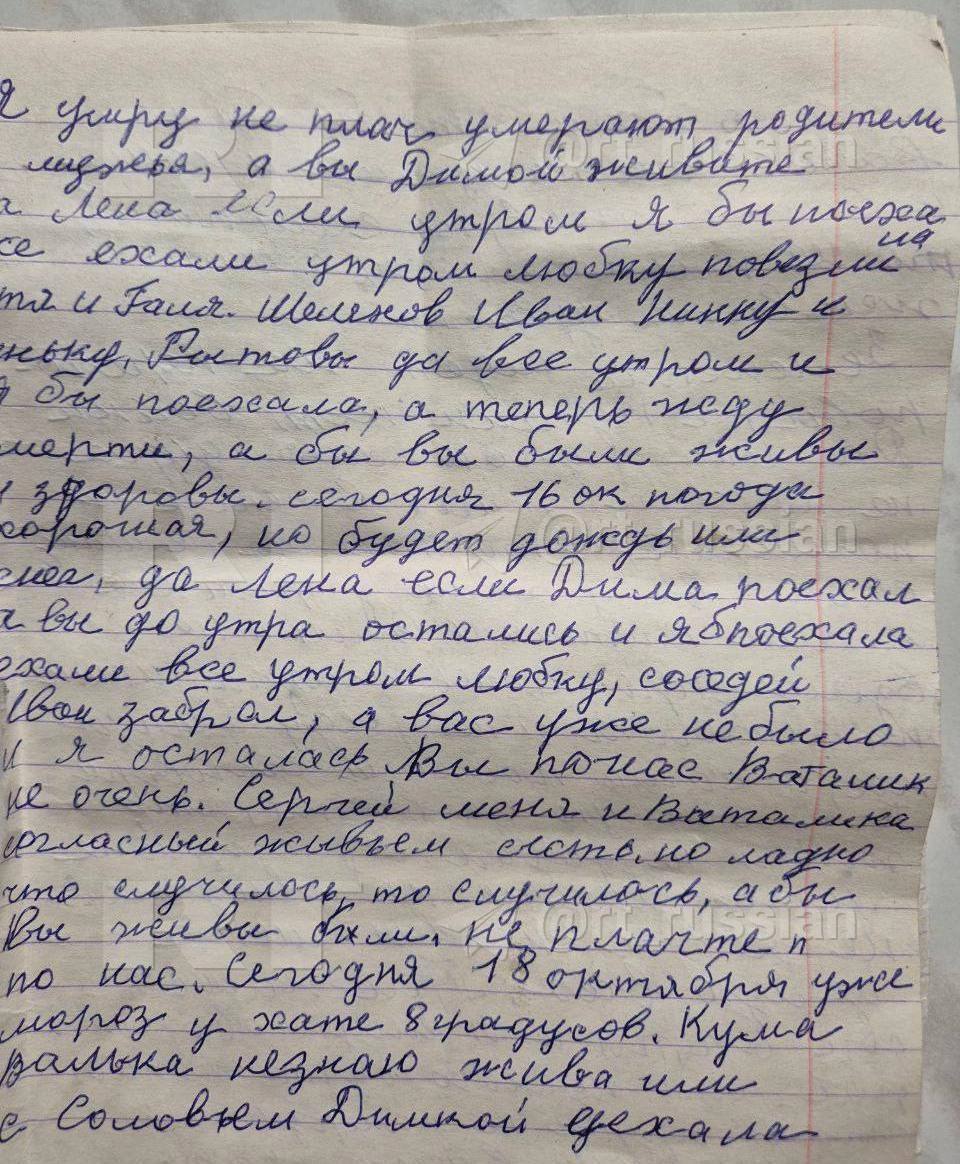 Я умру не плач умерают родители
мужья, а вы Димой живите
а Лена если утром я бы поеха
ла
се ехали утром Любку повезли
тя и Галя. Шеленов Иван Нинку и
ньку, да все утром и
я бы поехала, а теперь жду
мерти, а бы вы были живы
и здоровы. сегодня 16 ок погода
хорошая, но будет дождь или
снег, да Лена если Дима поехал
а вы до утра остались и я б поехала
ехали все утром Любку, соседей
Иван забрал, а вас уже небыло
и я осталась Вы понас Ваталик
не очень. Сергей меня и Ваталика
согласный живьем сесть, но ладно
что случилось, то случилось, абы
Вы живы были. не плачте п
по нас. Сегодня 18 октября уже
мороз у хате 8 градусов. Кума
Валька незнаю жива или
с Соловьем Димкой уехала
@rt_russian
@rt_russian
@rt_russian